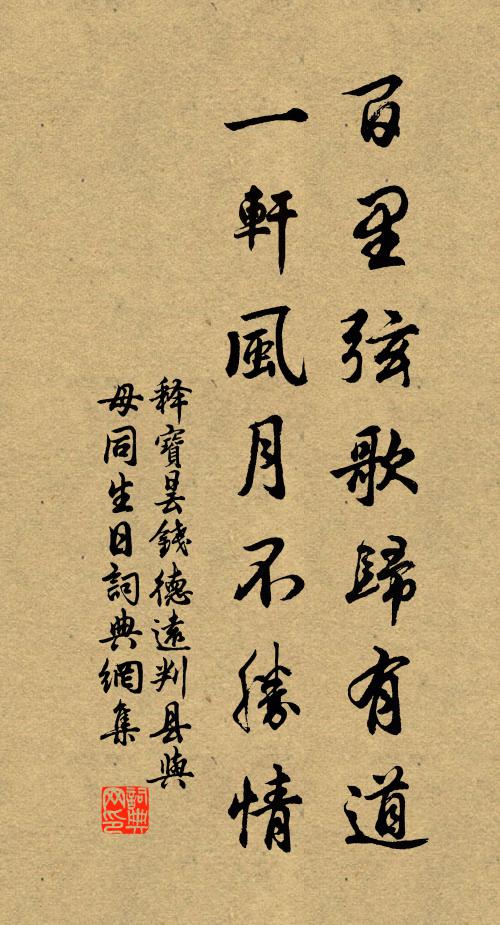 百里弦歌歸有道
一軒風月不勝情
释寶昙錢德遠判县與
母同生日詞典網集
詞典
网印